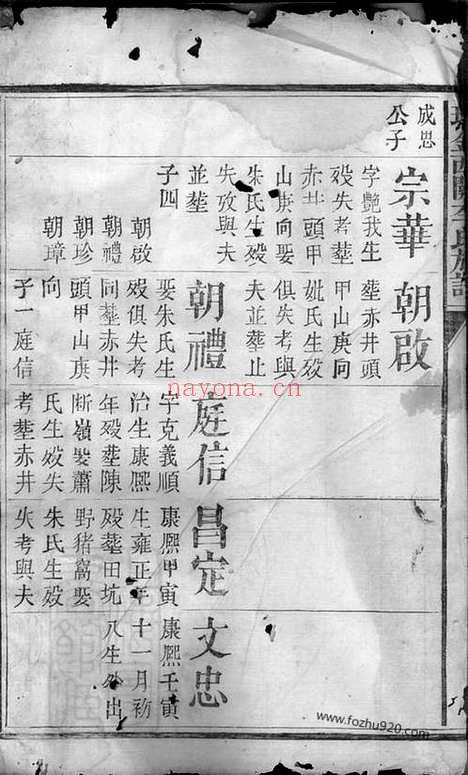 成思
公子
宗華
字艷我生
歿失考塟
赤井頭甲
山庚向娶
朱氏生歿
失攷與夫
並塟
子四
朝啟
朝禮
朝珍
朝璋
朝啟
塟赤井頭
甲山庚向
妣氏生歿
俱失考與
夫並塟止
朝禮
娶朱氏生
歿俱失考
同塟赤井
頭甲山庚
向
子一庭信
庭信
字克義順
治生康熙
年歿塟陳
断嶺娶蕭
氏生歿失
考塟赤井
昌定
康熙甲寅
生雍正年
歿塟田坑
野猪窩娶
朱氏生歿
失考與夫
文忠
康熙壬寅
十一月初
八生外出
nayona.cn
www.fozhu920.com